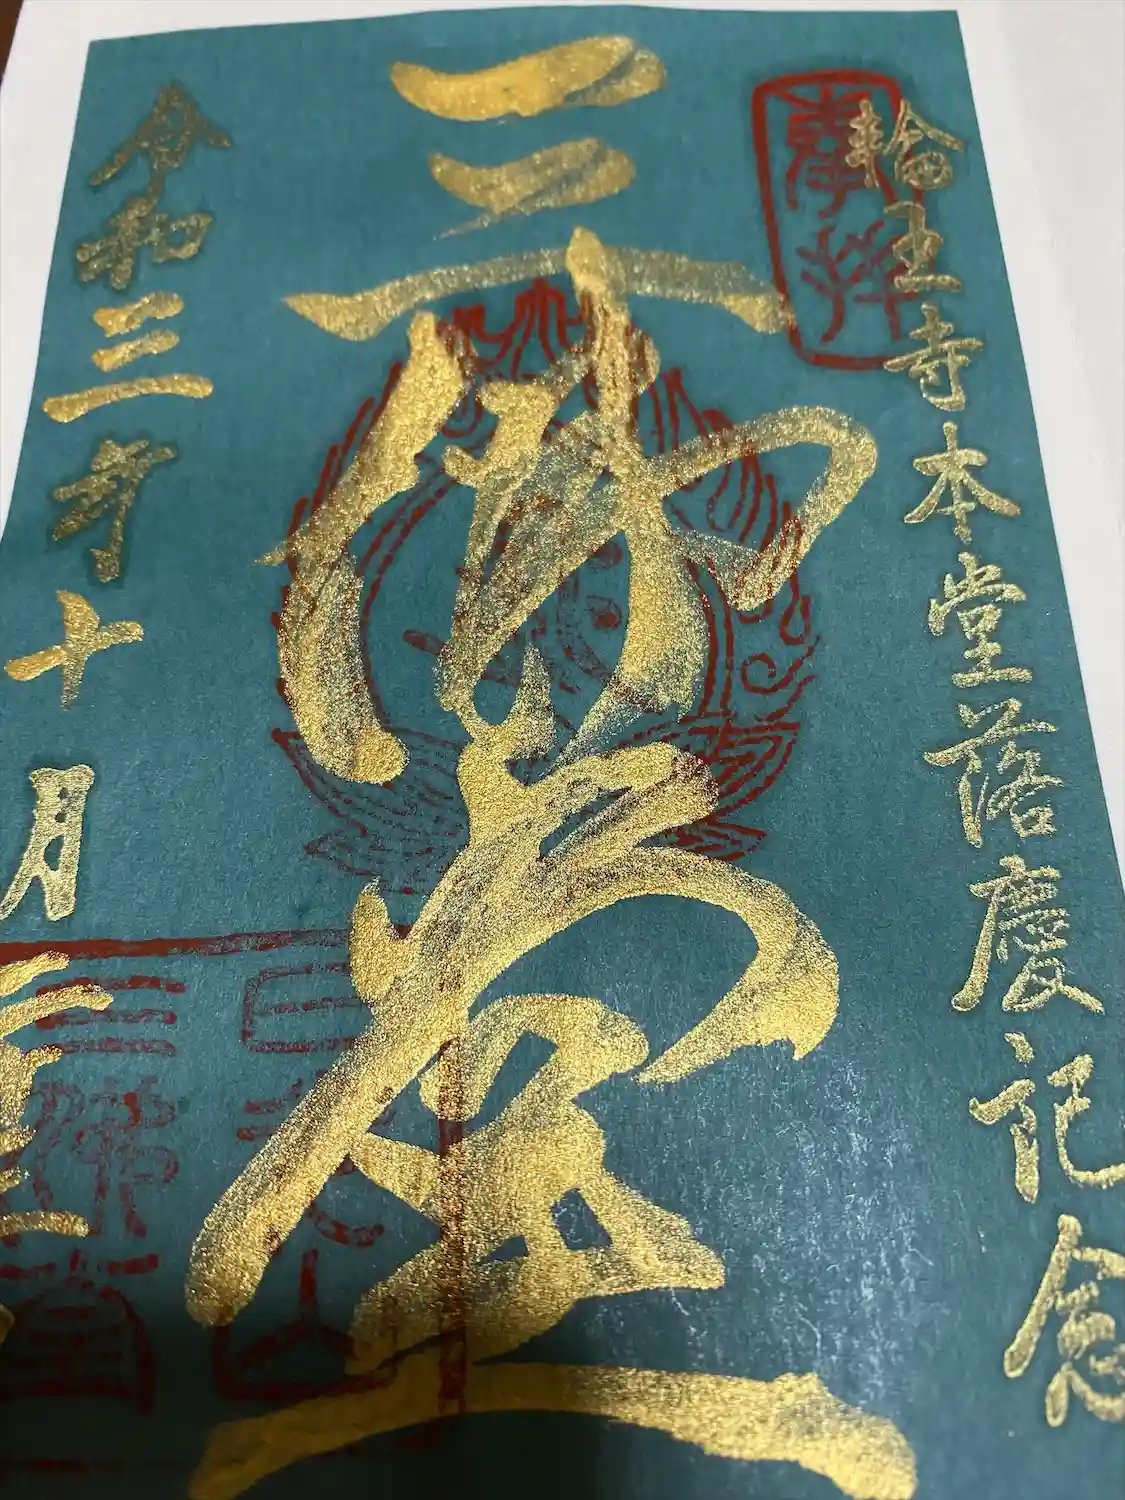 奉拝
輪王寺本堂落慶記念
三佛堂
令和三年十月
日光山
三佛堂